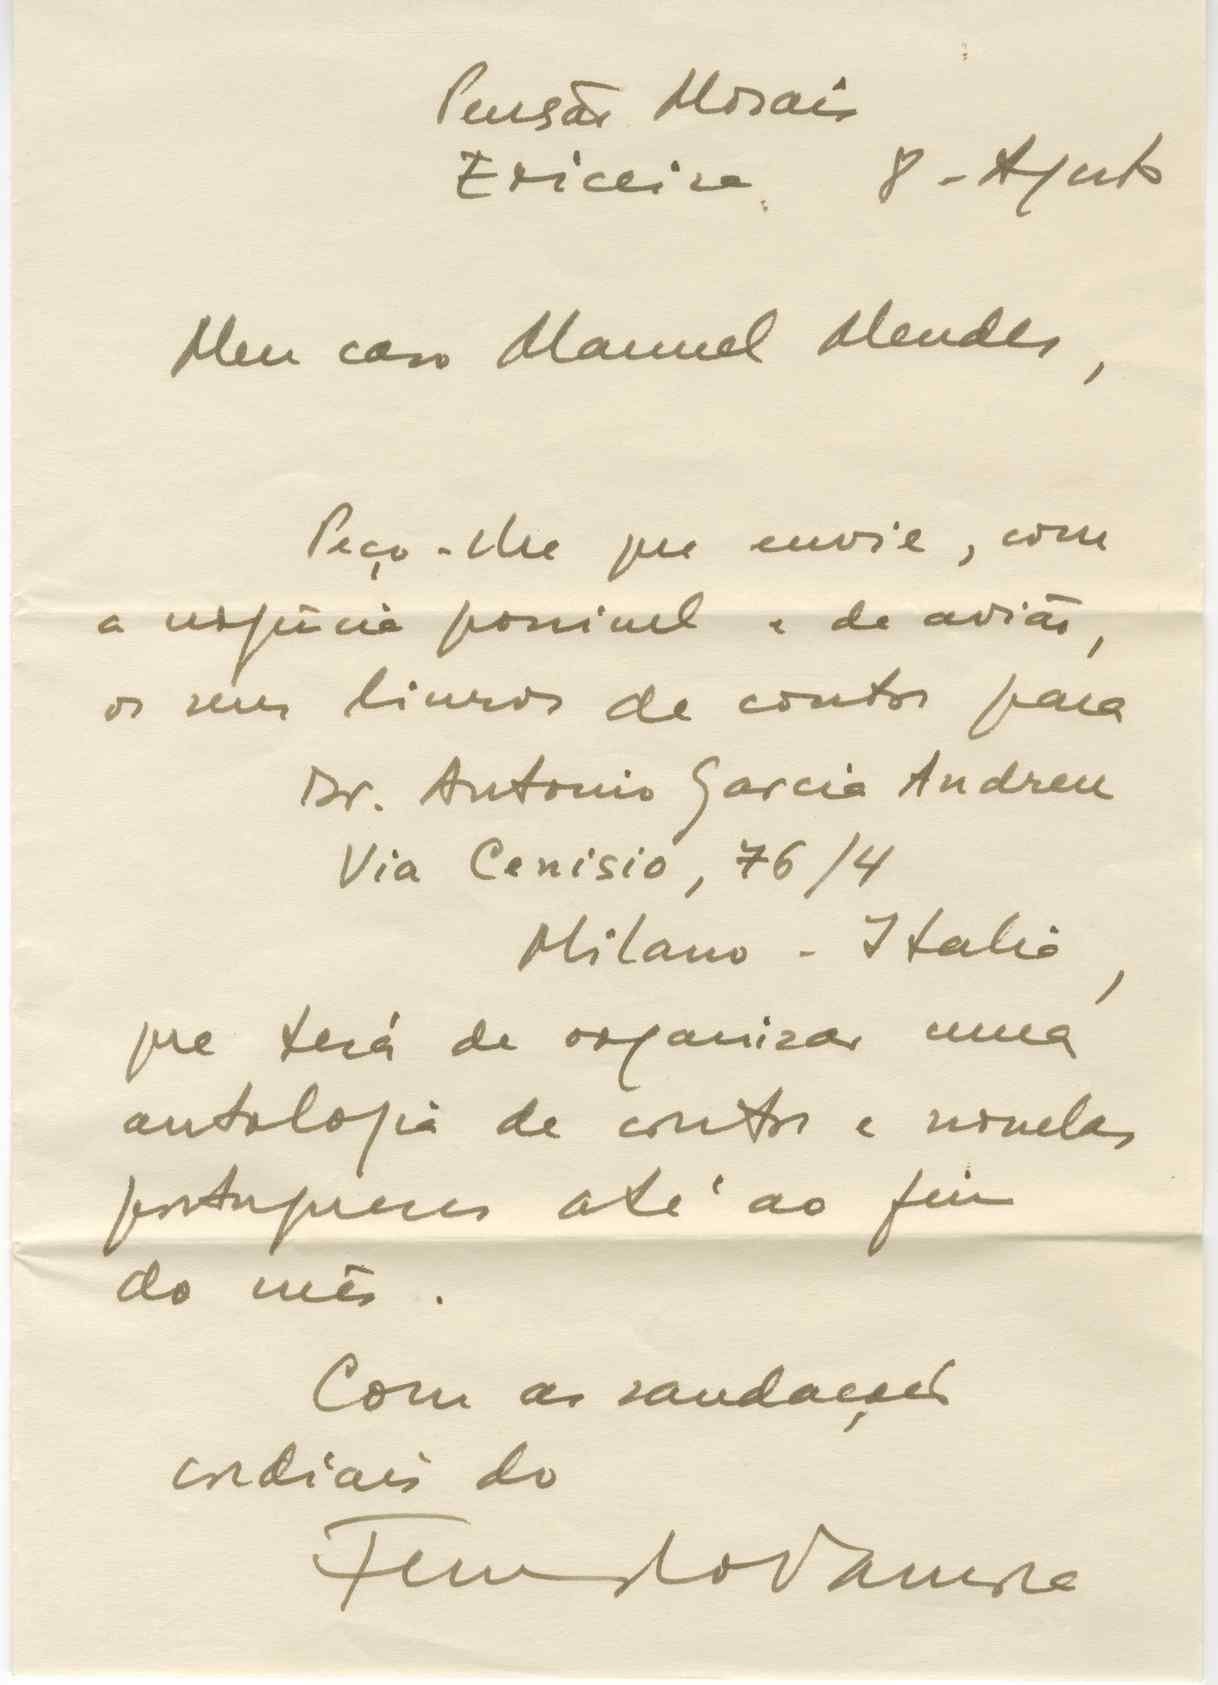 Pensão Morais
Ericeira, 8 - Agosto
Meu caro Manuel Mendes,
Peço-lhe que envie, com
a urgência possivel e de avião,
os seus livros de contos para
Dr. Antonio Garcia Andreu
Via Cenisio, 76/4
Milano - Italia,
que terá de organizar uma
antologia de contos e novelas
portugueses até ao fim
do mês.
Com as saudações
cordiais do
Fernando Namora